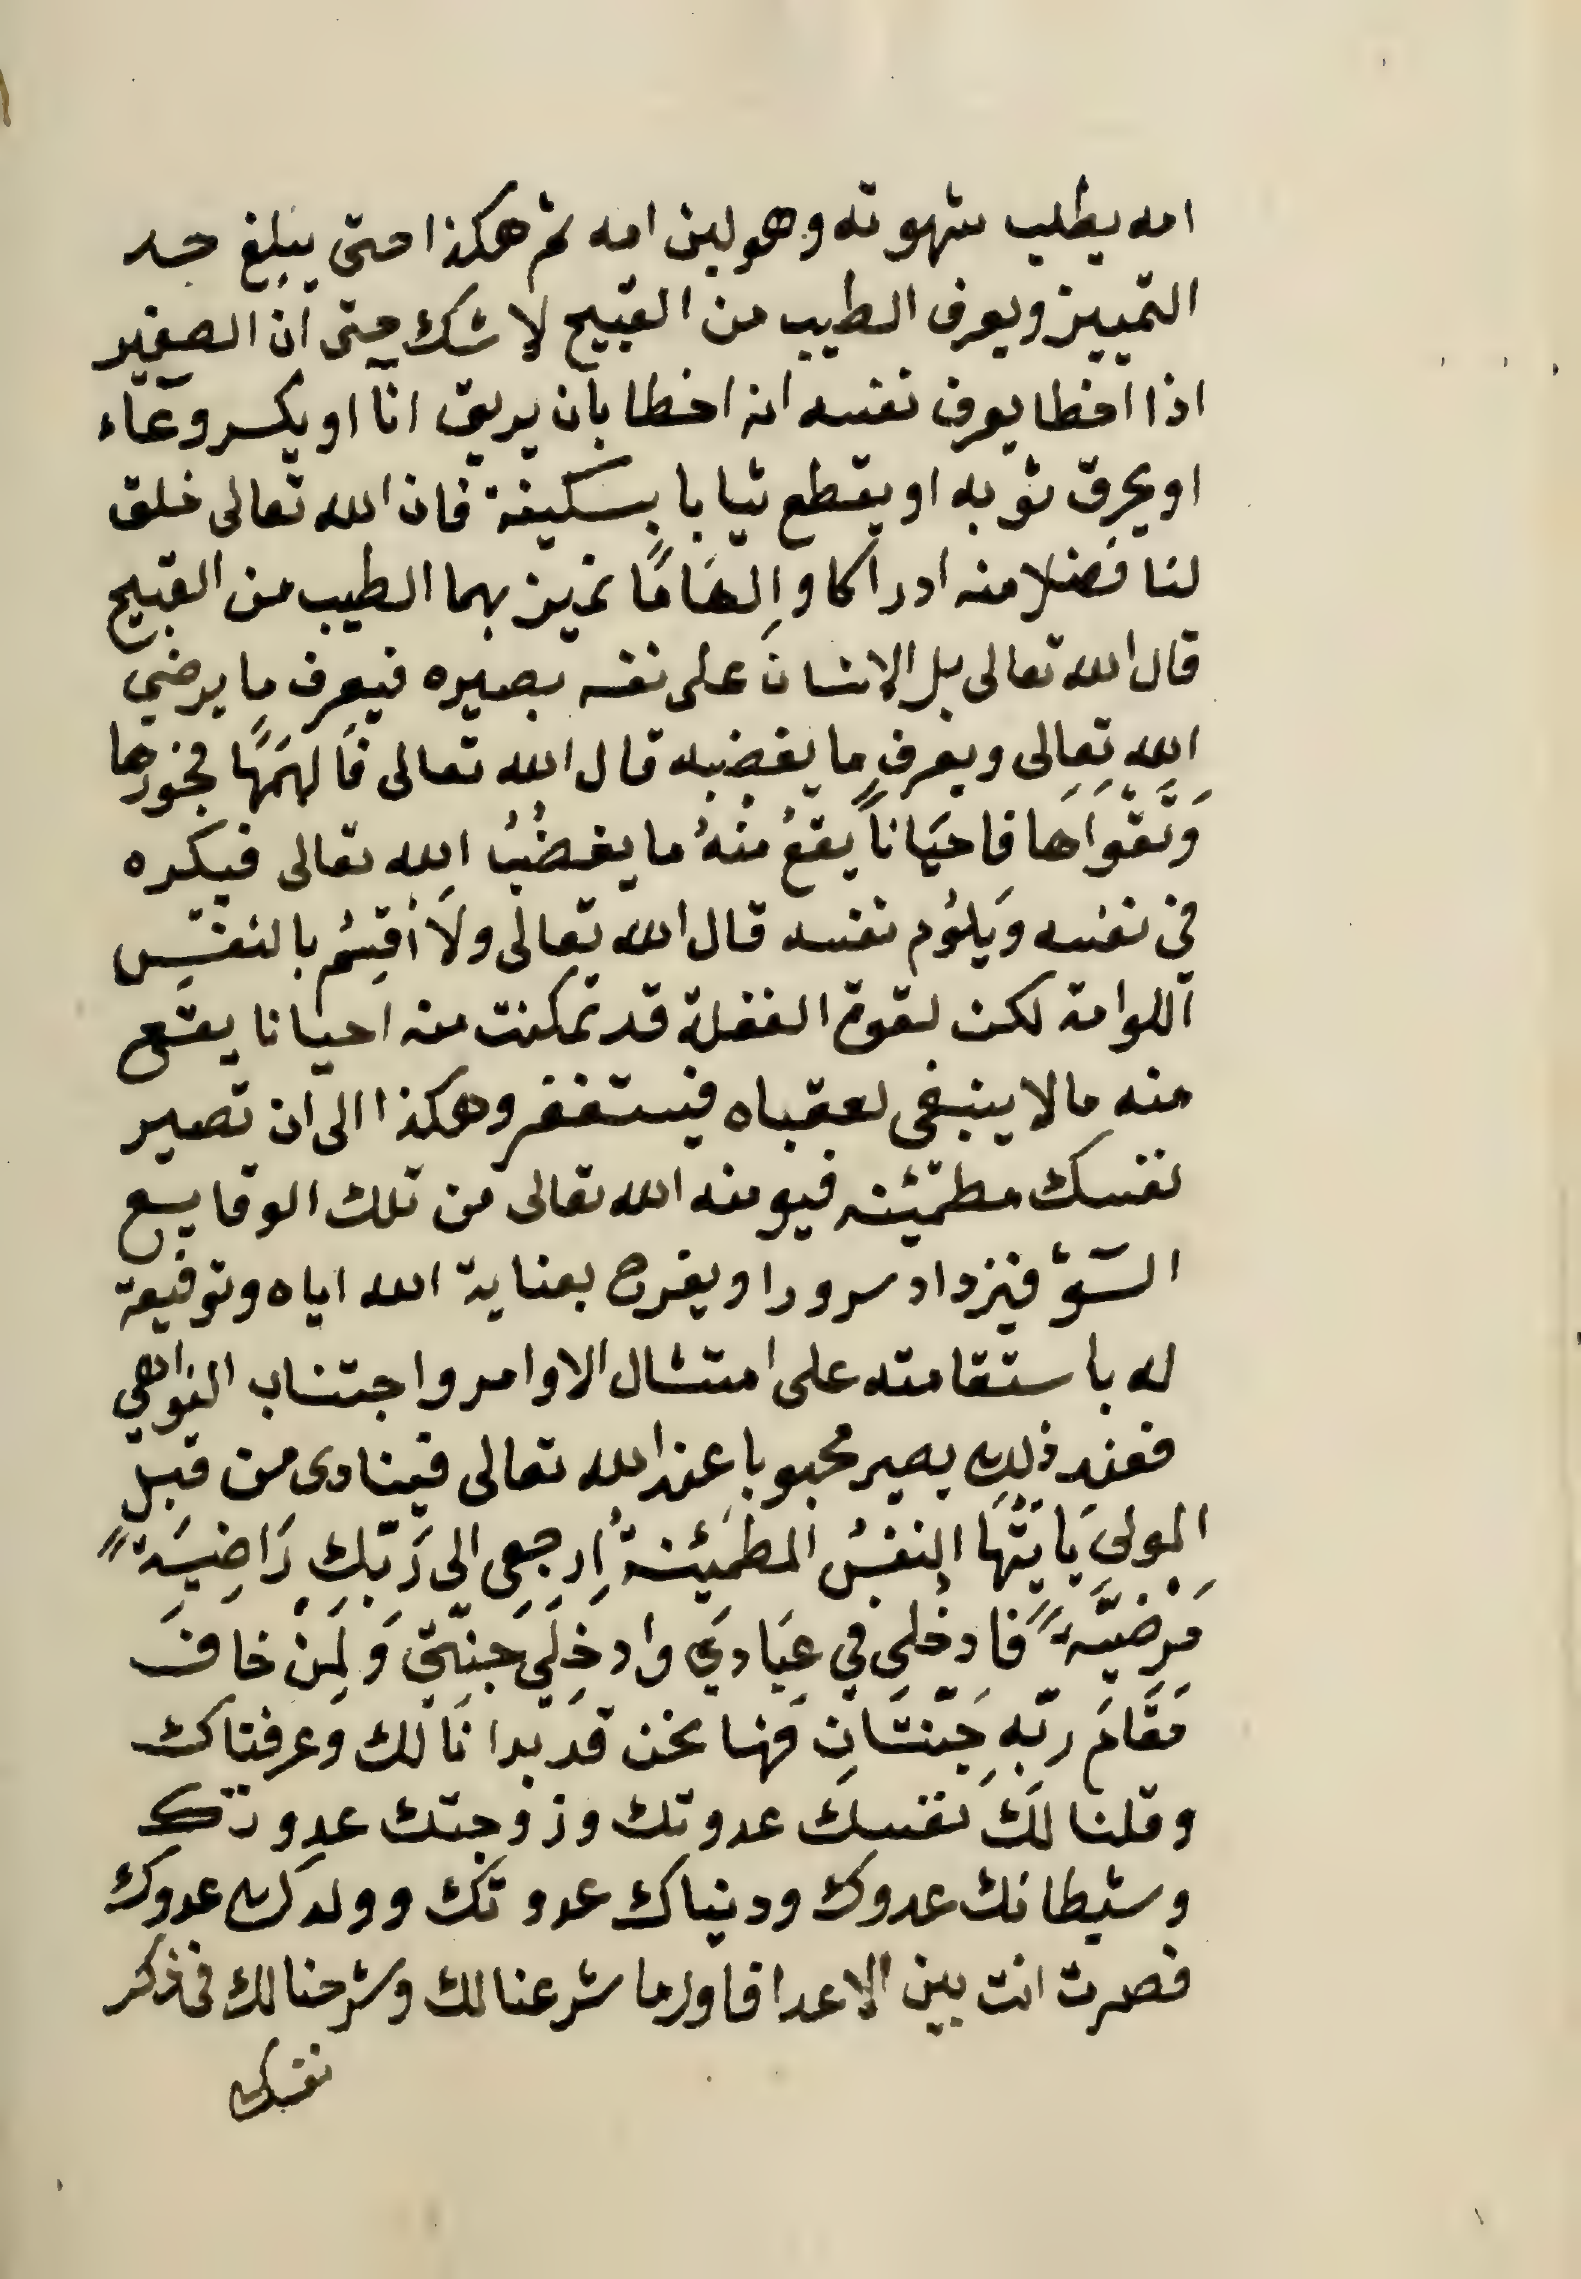 امه يطلب شهوته وهو لبن امه ثم هكذا حتى يبلغ حد
التمييز ويعرف الطيب من القبيح لا شك حتى ان الصغير
اذا اخطا يعرف نفسه انه اخطا بان يريق انآ او يكسر وعآء
او يحرق ثوبه او يقطع ثيابا بسكينة فان الله تعالى خلق
لنا فضلا منه ادراكا وإلهَامًا نميز بهما الطيب من القبيح
قال الله تعالى بل الانسان على نفسه بصيره فيعرف ما يرضي
الله تعالى ويعرف ما يغضبه قال الله تعالى فَالهَمَهَا فجورها
وَتَقْوَاهَا فاحيَاناً يقعُ منْهُ ما يغضُبُ الله تعالى فيكره
في نفسه وَيلوُم نفسه قال الله تعالى ولَا أقسِمُ بالنفسِ
اللوامة لكن لقوة الغفلة قد تمكنت منه احيانا يقع
منه ما لا ينبغي لعقباه فيستغفر وهكذا الى ان تصير
نفسك مطمئنه فيومنه الله تعالى من تلك الوقايع
السّوْ فيزداد سرورا ويفرح بعناية الله اياه وتوفيقه
له باستقامته على امتثال الاوامر واجتناب النواهي
فعند ذلك يصير محبوبا عند الله تعالى فينادى من قبل
المولىَ يَايَتُهَا النفسُ المطمَئنةُ إرجعِى الى رَبّكِ رَاضِيَةً
مَرْضيَّةً فَادخُلِى في عِبَادي وادخلِىَ جَنتّي وَلمَنْ خافَ
مَقَامَ ربّهِ جَنّتَانِ فَها نحن قد بدانَا لك وعرفناك
وقلنا لكَ نفسك عدوتك وزوجتك عدوتك
وشيطانك عدوك ودنياك عدوتك وولدك عدوك
فصرت انت بين الاعدا فاول ما شرعنا لك وشرحنا لك في ذكر
نفسك